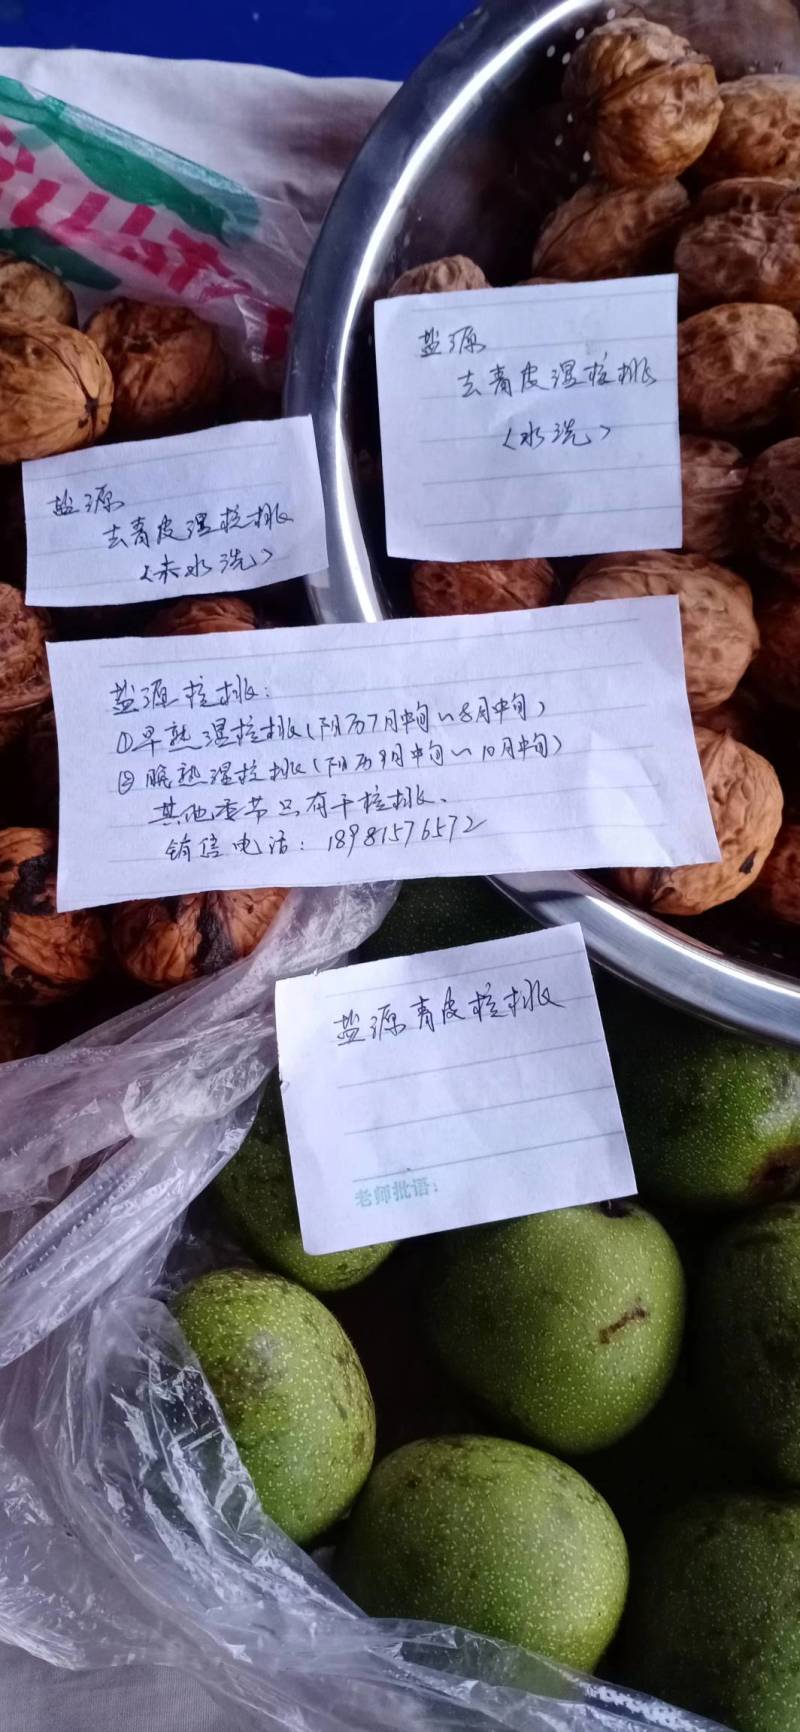 盐源
去青皮湿核桃
<水洗>
盐源
去青皮湿核桃
<未水洗>
盐源核桃:
①早熟湿核桃(阴历7月中旬~8月中旬)
②晚熟湿核桃(阴历9月中旬~10月中旬)
其他季节只有干核桃、
销售电话: 18981576572
盐源青皮核桃
老师批语: